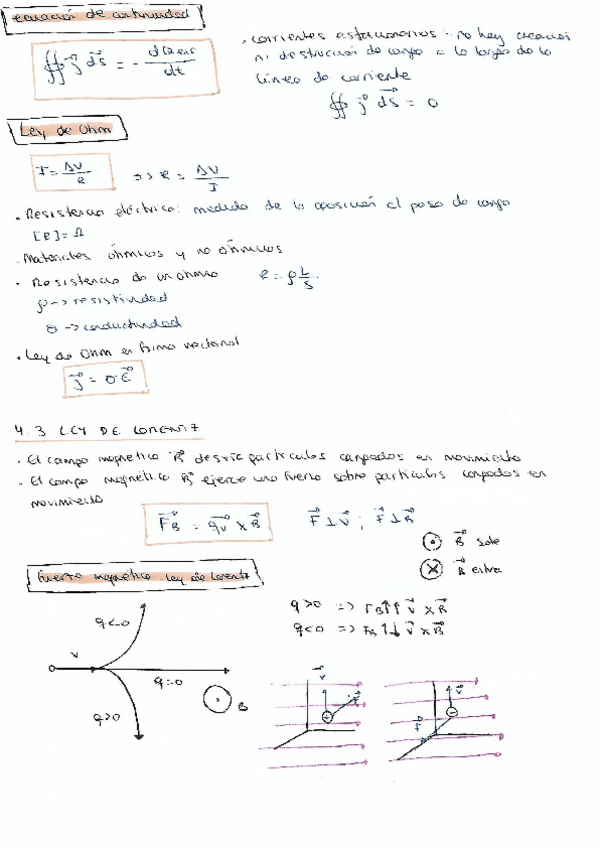 ecuación de continuidad
∯ j⃗ dS⃗ = - dQenc/dt
· corrientes estacionarias · no hay creación
ni destrucción de carga a lo largo de la
línea de corriente
∯ j⃗ dS⃗ = 0
Ley de Ohm
I = ΔV/R => R = ΔV/I
· Resistencia eléctrica: medida de la oposición al paso de carga
[R] = Ω
· Materiales óhmicos y no óhmicos
· Resistencia de un óhmico R = ρ L/S
ρ -> resistividad
σ -> conductividad
· Ley de Ohm en forma vectorial
j⃗ = σ·E⃗
4.3 LEY DE LORENTZ
· El campo magnético B⃗ desvía partículas cargadas en movimiento
· El campo magnético B⃗ ejerce una fuerza sobre partículas cargadas en
movimiento
F⃗B = qv⃗ x B⃗ F⃗ ⊥ v⃗ ; F⃗ ⊥ B⃗
⊙ B⃗ sale
⊗ B⃗ entra
Fuerza magnética Ley de Lorentz
q<0
q>0 => FB ↑↑ v⃗ x B⃗
q<0 => FB ↑↓ v⃗ x B⃗
v
q=0
B
q>0
v⃗
F⃗
+
v⃗
F⃗
-